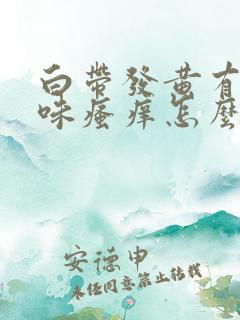 白帶發黃有
味瘙痒怎麼
安德申
未经同意禁止转载